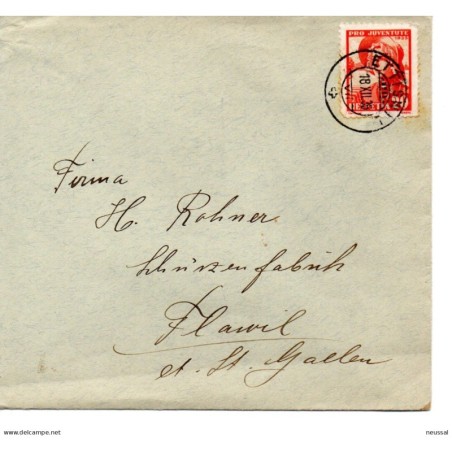 PRO JUVENTUTE
18.XII.
HELVETIA
Firma
H. Rohner
Schürzenfabrik
Flawil
ct. St. Gallen
www.delcampe.net
neussal